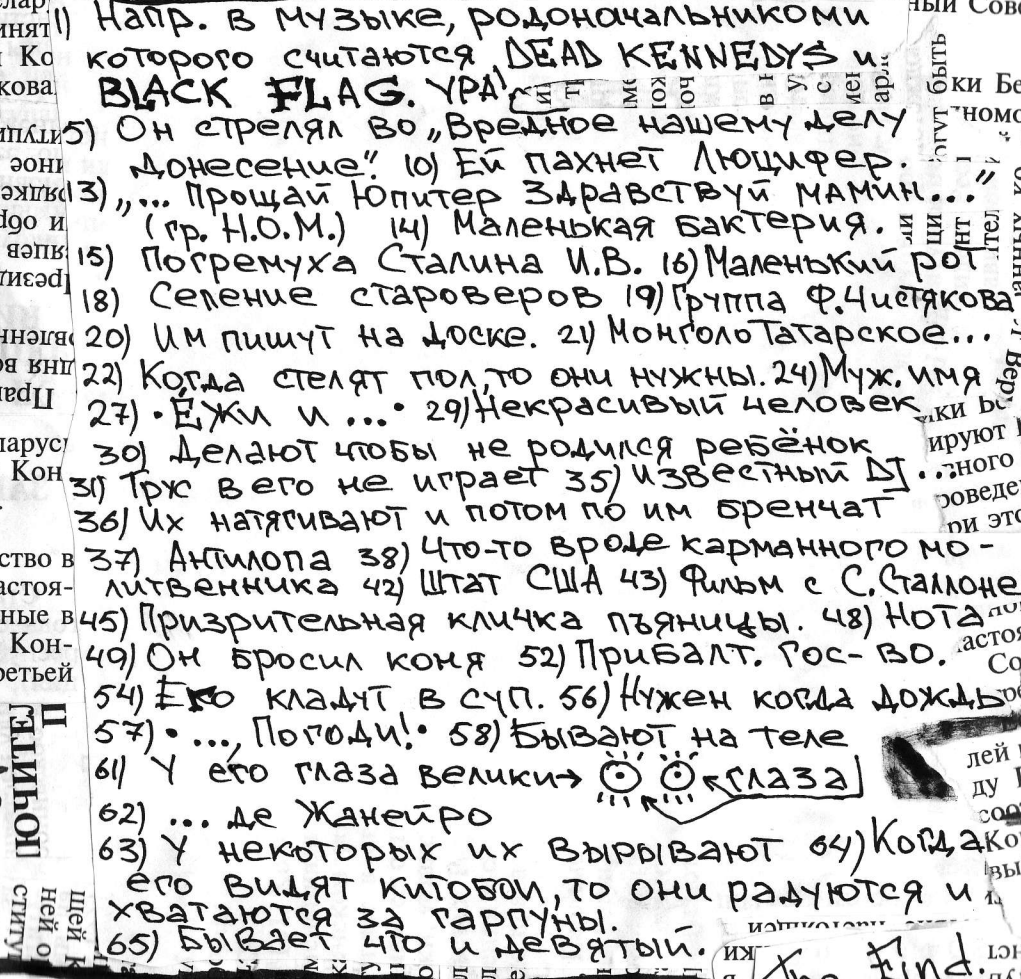 1) Напр. в музыке, родоначальникоми
которого считаются DEAD KENNEDYS и
BLACK FLAG. УРА!
5) Он стрелял во „Вредное нашему делу
донесение". 10) Ей пахнет Люцифер.
13) „... Прощай Юпитер Здравствуй мамин..."
(гр. Н.О.М.) 14) Маленькая бактерия.
15) Погремуха Сталина И.В. 16) Маленький рот
18) Селение староверов 19) Группа Ф.Чистякова
20) Им пишут на доске. 21) МонголоТатарское...
22) Когда стелят пол, то они нужны. 24) Муж. имя
27) • Ёжи и ... • 29) Некрасивый человек
30) Делают чтобы не родился ребёнок
31) Трус в его не играет 35) Известный DJ...
36) Их натягивают и потом по им бренчат
37) Антилопа 38) Что-то вроде карманного мо-
литвенника 42) Штат США 43) Фильм с С.Сталлоне
45) Призрительная кличка пъяницы. 48) Нота
49) Он бросил коня 52) Прибалт. Гос-во.
54) Его кладут в суп. 56) Нужен когда дождь
57) • ..., Погоди! • 58) Бывают на теле
61) У его глаза велики→ ←глаза
62) ... де Жанейро
63) У некоторых их вырывают 64) Когда
его видят китобои, то они радуются и
хватаются за гарпуны.
65) Бывает что и девятый.
The Find.